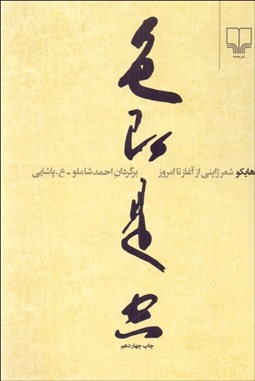 نشرچشمه
色即是空
هایکو شعر ژاپنی از آغاز تا امروز برگردانِ احمد شاملو - ع. پاشایی
چاپ چهاردهم